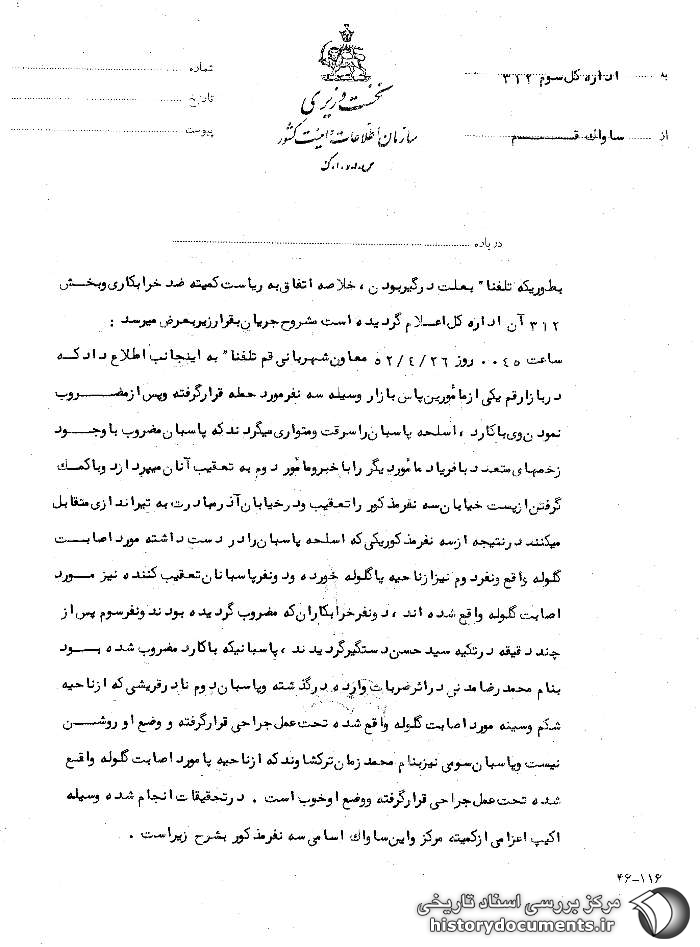 به ..... اداره کل سوم ۳۱۲
از ..... ساواک قم
نخست وزیری
سازمان اطلاعات و امنیت کشور
س.ا.و.ا.ک
شماره
تاریخ
پیوست
درباره
بطوریکه تلفنا" بعلت درگیربودن ، خلاصه اتفاق به ریاست کمیته ضد خرابکاری وبخش
۳۱۲ آن اداره کل اعلام گردیده است مشروح جریان بقرارزیربعرض میرسد :
ساعت ۰۰۴۵ روز ۵۲/۴/۲۶ معاون شهربانی قم تلفنا" به اینجانب اطلاع داد که
دربازارقم یکی ازمأمورین پاس بازار وسیله سه نفرمورد حمله قرارگرفته وپس ازمضروب
نمودن وی باکارد ، اسلحه پاسبان راسرقت ومتواری میگردند که پاسبان مضروب باوجود
زخمهای متعدد بافریاد مأموردیگر راباخبرومأمور دوم به تعقیب آنان میپردازد وباکمک
گرفتن ازپست خیابان سه نفرمذکور راتعقیب ودرخیابان آذرمبادرت به تیراندازی متقابل
میکنند درنتیجه ازسه نفرمذکوریکی که اسلحه پاسبان رادر دست داشته مورد اصابت
گلوله واقع ونفردوم نیزازناحیه پاگلوله خورده ودونفرپاسبانان تعقیب کننده نیز مورد
اصابت گلوله واقع شده اند ، دونفرخرابکاران که مضروب گردیده بودند ونفرسوم پس از
چند دقیقه درتکیه سید حسن دستگیرگردیدند ، پاسبانیکه باکارد مضروب شده بود
بنام محمدرضا مدنی دراثرضربات وارده درگذشته وپاسبان دوم نادرقریشی که ازناحیه
شکم وسینه مورد اصابت گلوله واقع شده تحت عمل جراحی قرارگرفته و وضع او روشن
نیست وپاسبان سومی نیزبنام محمد زمان ترکشاوند که ازناحیه پا مورد اصابت گلوله واقع
شده تحت عمل جراحی قرارگرفته ووضع اوخوب است . درتحقیقات انجام شده وسیله
اکیپ اعزامی ازکمیته مرکز واین ساواک اسامی سه نفرمذکور بشرح زیراست .
۴۶-۱۱۶
مرکز بررسی اسناد تاریخی
historydocuments.ir